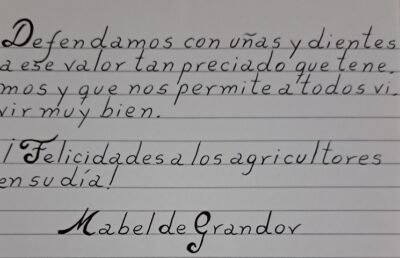 Defendamos con uñas y dientes
a ese valor tan preciado que tene.
mos y que nos permite a todos vi.
vir muy bien.
¡Felicidades a los agricultores
en su día!
Mabel de Grandov